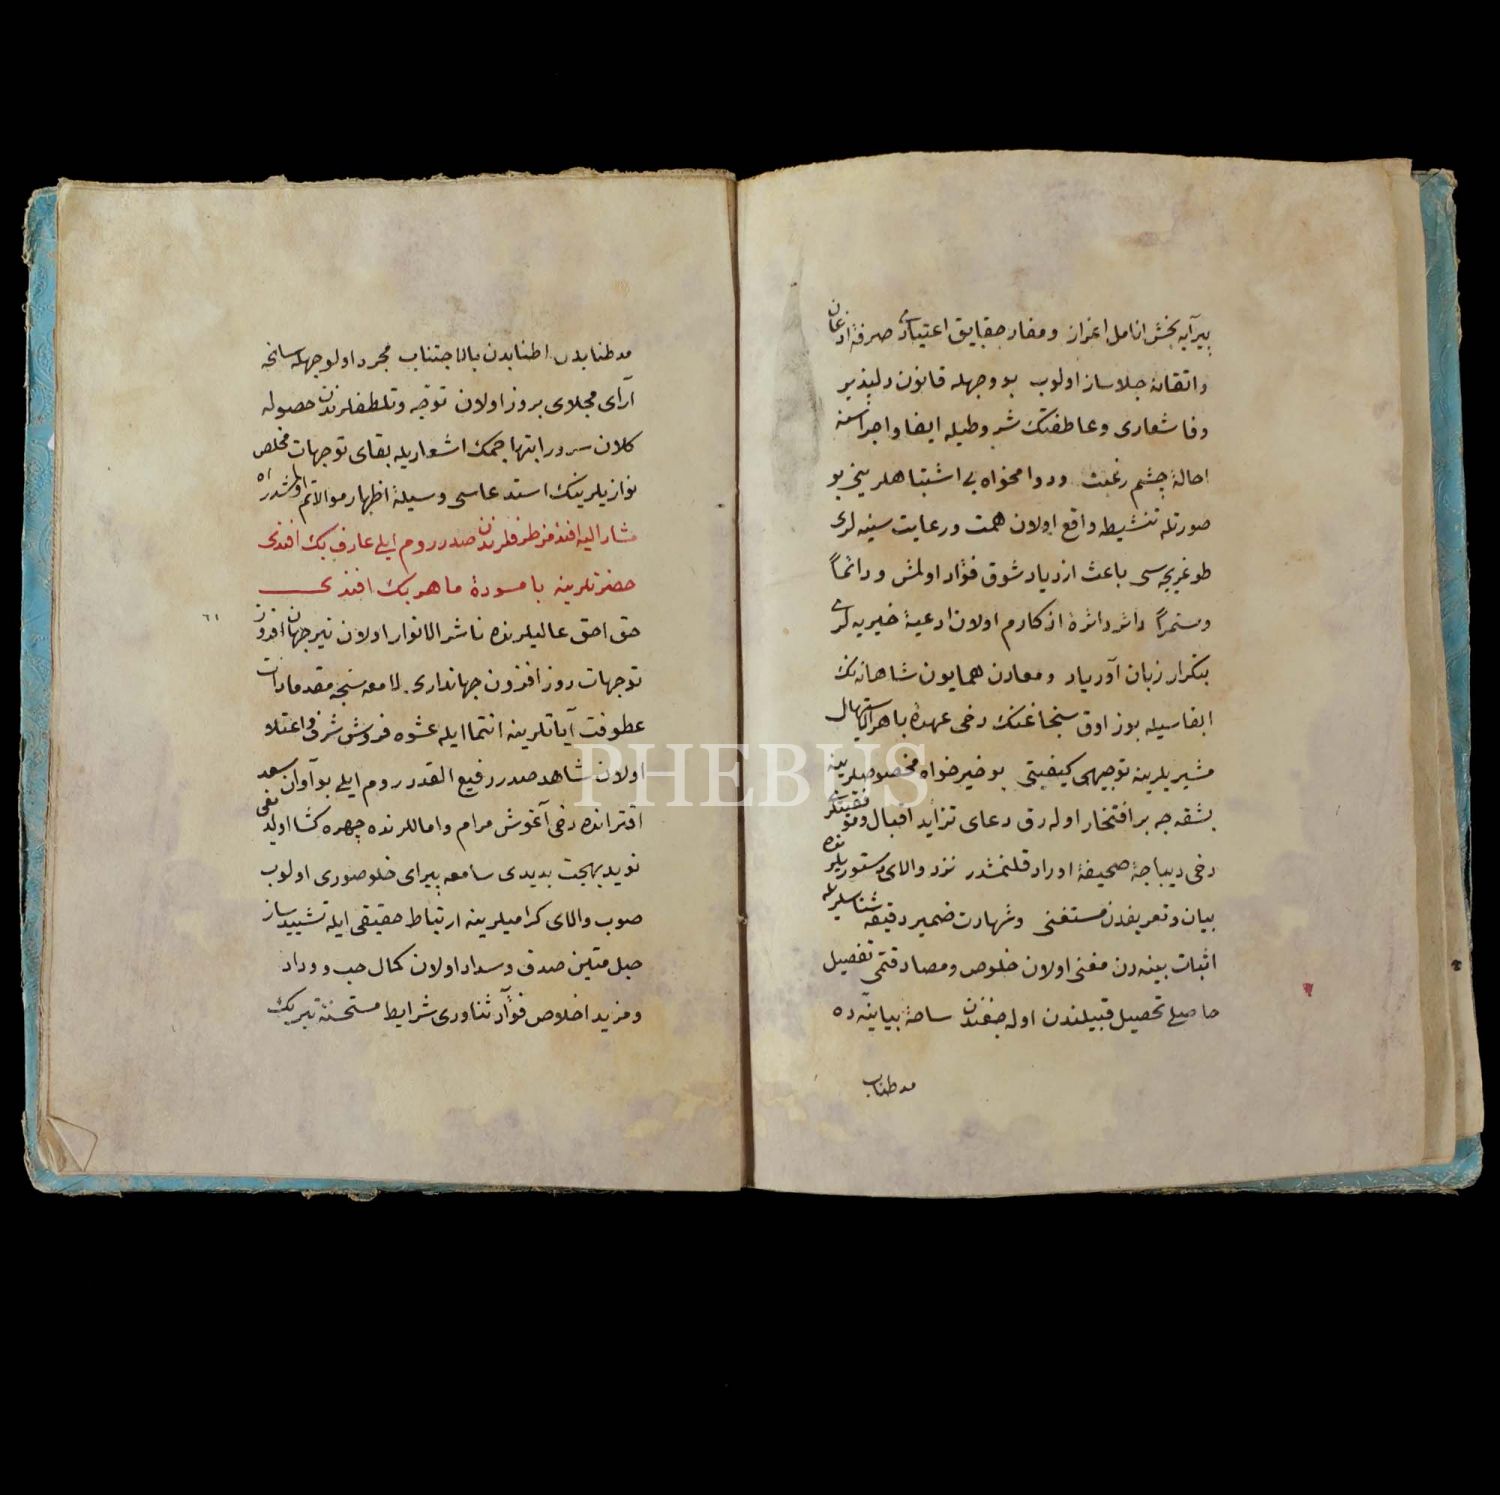 پیرآیه بخش انامل اعزاز ومفاد حقایق اعتیادی صرفهٔ اذعان
واتقانه جلاساز اولوب بو وجهله قانون دلپذیر
وفا شعاری وعاطفتك شروطیله ایفا واجراسنه
احالهٔ چشم رغبت ودوامخواه بی اشتباهلرینی بو
صورتله تنشیطه واقع اولان همت ورعایت سنیه لری
طوغریجه سی باعث ازدیاد شوق فؤاد اولمش ودائماً
ومستمراً دائر دائرهٔ اذکارم اولان ادعیهٔ خیریه لری
بتکرار زبان آوریاد ومعادن همایون شاهانه نك
انفاسیله بوز اوق سنجاغنك دخی عهدهٔ باهر
مشیریلرینه توجیهی کیفیتی بو خیرخواه مخصوصلرینه
بشقه جه بر افتخار اوله رق دعای تزاید اقبال
دخی دیباجهٔ صحیفهٔ اوراد قلنمشدر نزد والای دستوریلرنده
بیان وتعریفدن مستغنی وشهادت ضمیر دقیقه شناسلریله
اثبات بینه دن مغنی اولان خلوص ومصادقتمی تفصیل
حاصلی تحصیل قبیلندن اوله جغندن ساحهٔ بیانده
مطناب
اطنابدن بالاجتناب مجرد اولوجهله سانحه
آرای مجلای بروز اولان توجه وتلطفلرندن حصوله
کلان سرور ابتهاجمك اشعاریله بقای توجهات مخلص
نوازیلرینك استدعاسی وسیلهٔ اظهار موالاتم اولمشدر
مشار الیه افندمز طرفلرندن صدر روم ایلی عارف بك افندی
حضرتلرینه با مسودهٔ ماهر بك افندی
حق احق عالیلرنده ناشر الانوار اولان نیر جهان افروز
توجهات روز افزون جهانداری لامعه سنجه
عطوفت آیاتلرینه انتما ایله عشوه فروش شرف واعتلا
اولان شاهد صدر رفیع القدر روم ایلی بو آوان سعد
اقترانده دخی آغوش مرام واماللرنده چهره کشا اولدیغی
نوید بهجت بدیدی سامعه پیرای خلوصوری اولوب
صوب والای کرامیلرینه ارتباط حقیقی ایله تشیید ساز
حبل متین صدق وسداد اولان کمال حب ووداد
ومزید اخلاص فؤاد ثناوری شرایط مستحسنهٔ تبریك
٦١
PHEBUS